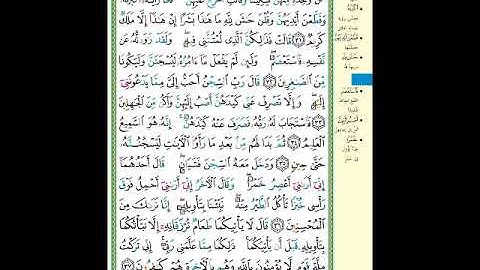 وَقَطَّعْنَ أَيْدِيَهُنَّ وَقُلْنَ حَٰشَ لِلَّهِ مَا هَٰذَا بَشَرًا إِنْ هَٰذَآ إِلَّا مَلَكٌ
كَرِيمٌ ٣١ قَالَتْ فَذَٰلِكُنَّ ٱلَّذِى لُمْتُنَّنِى فِيهِ ۖ وَلَقَدْ رَٰوَدتُّهُۥ عَن
نَّفْسِهِۦ فَٱسْتَعْصَمَ ۖ وَلَئِن لَّمْ يَفْعَلْ مَآ ءَامُرُهُۥ لَيُسْجَنَنَّ وَلَيَكُونًا
مِّنَ ٱلصَّٰغِرِينَ ٣٢ قَالَ رَبِّ ٱلسِّجْنُ أَحَبُّ إِلَىَّ مِمَّا يَدْعُونَنِىٓ
إِلَيْهِ ۖ وَإِلَّا تَصْرِفْ عَنِّى كَيْدَهُنَّ أَصْبُ إِلَيْهِنَّ وَأَكُن مِّنَ ٱلْجَٰهِلِينَ
٣٣ فَٱسْتَجَابَ لَهُۥ رَبُّهُۥ فَصَرَفَ عَنْهُ كَيْدَهُنَّ ۚ إِنَّهُۥ هُوَ ٱلسَّمِيعُ
ٱلْعَلِيمُ ٣٤ ثُمَّ بَدَا لَهُم مِّنۢ بَعْدِ مَا رَأَوُا۟ ٱلْءَايَٰتِ لَيَسْجُنُنَّهُۥ
حَتَّىٰ حِينٍ ٣٥ وَدَخَلَ مَعَهُ ٱلسِّجْنَ فَتَيَانِ ۖ قَالَ أَحَدُهُمَآ
إِنِّىٓ أَرَىٰنِىٓ أَعْصِرُ خَمْرًا ۖ وَقَالَ ٱلْءَاخَرُ إِنِّىٓ أَرَىٰنِىٓ أَحْمِلُ فَوْقَ
رَأْسِى خُبْزًا تَأْكُلُ ٱلطَّيْرُ مِنْهُ ۖ نَبِّئْنَا بِتَأْوِيلِهِۦٓ ۖ إِنَّا نَرَىٰكَ مِنَ
ٱلْمُحْسِنِينَ ٣٦ قَالَ لَا يَأْتِيكُمَا طَعَامٌ تُرْزَقَانِهِۦٓ إِلَّا نَبَّأْتُكُمَا
بِتَأْوِيلِهِۦ قَبْلَ أَن يَأْتِيَكُمَا ۚ ذَٰلِكُمَا مِمَّا عَلَّمَنِى رَبِّىٓ ۚ إِنِّى تَرَكْتُ
مِلَّةَ قَوْمٍ لَّا يُؤْمِنُونَ بِٱللَّهِ وَهُم بِٱلْءَاخِرَةِ هُمْ كَٰفِرُونَ ٣٧